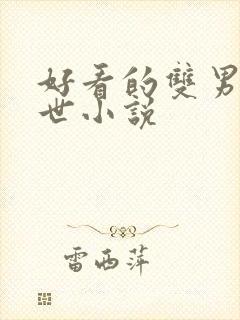 好看的雙男
世小說
雷西萍